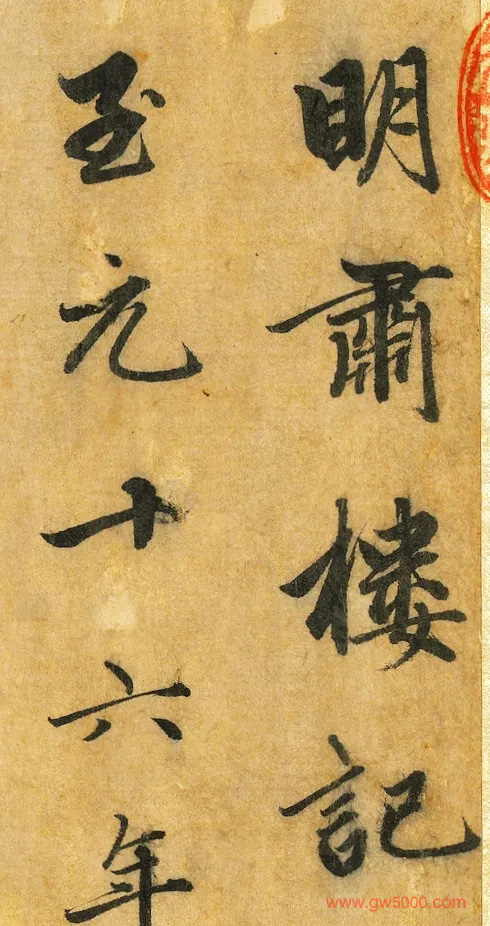 明肅樓記
至元十六年
www.gw5000.com